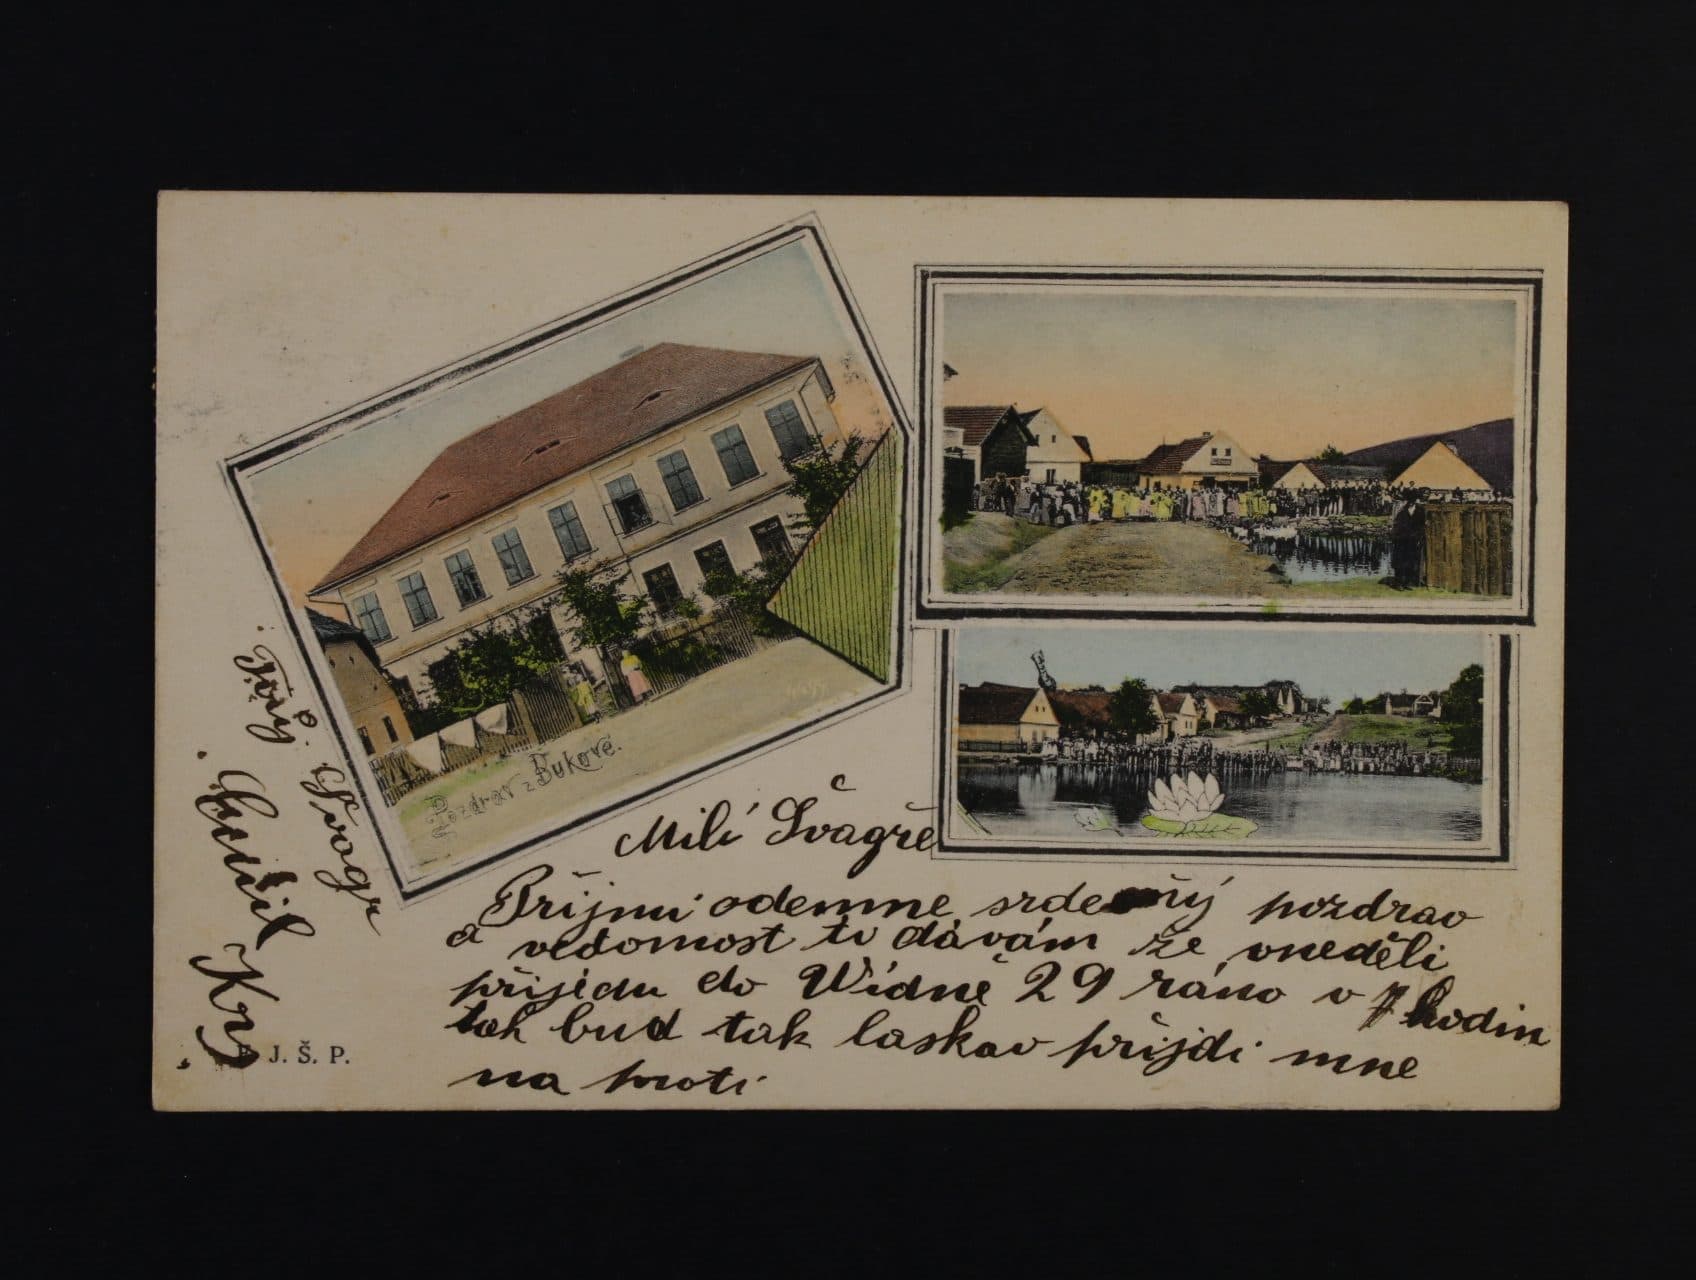 Pozdrav z Bukové.
Milí Švagře
Přijmi odemne srdečný pozdrav
a vědomost ti dávám že vneděli
přijedu do Wídně 29 ráno v 7 hodin
tak bud tak laskav přijdi mne
na proti
Tvůj Švagr
J. Š. P.